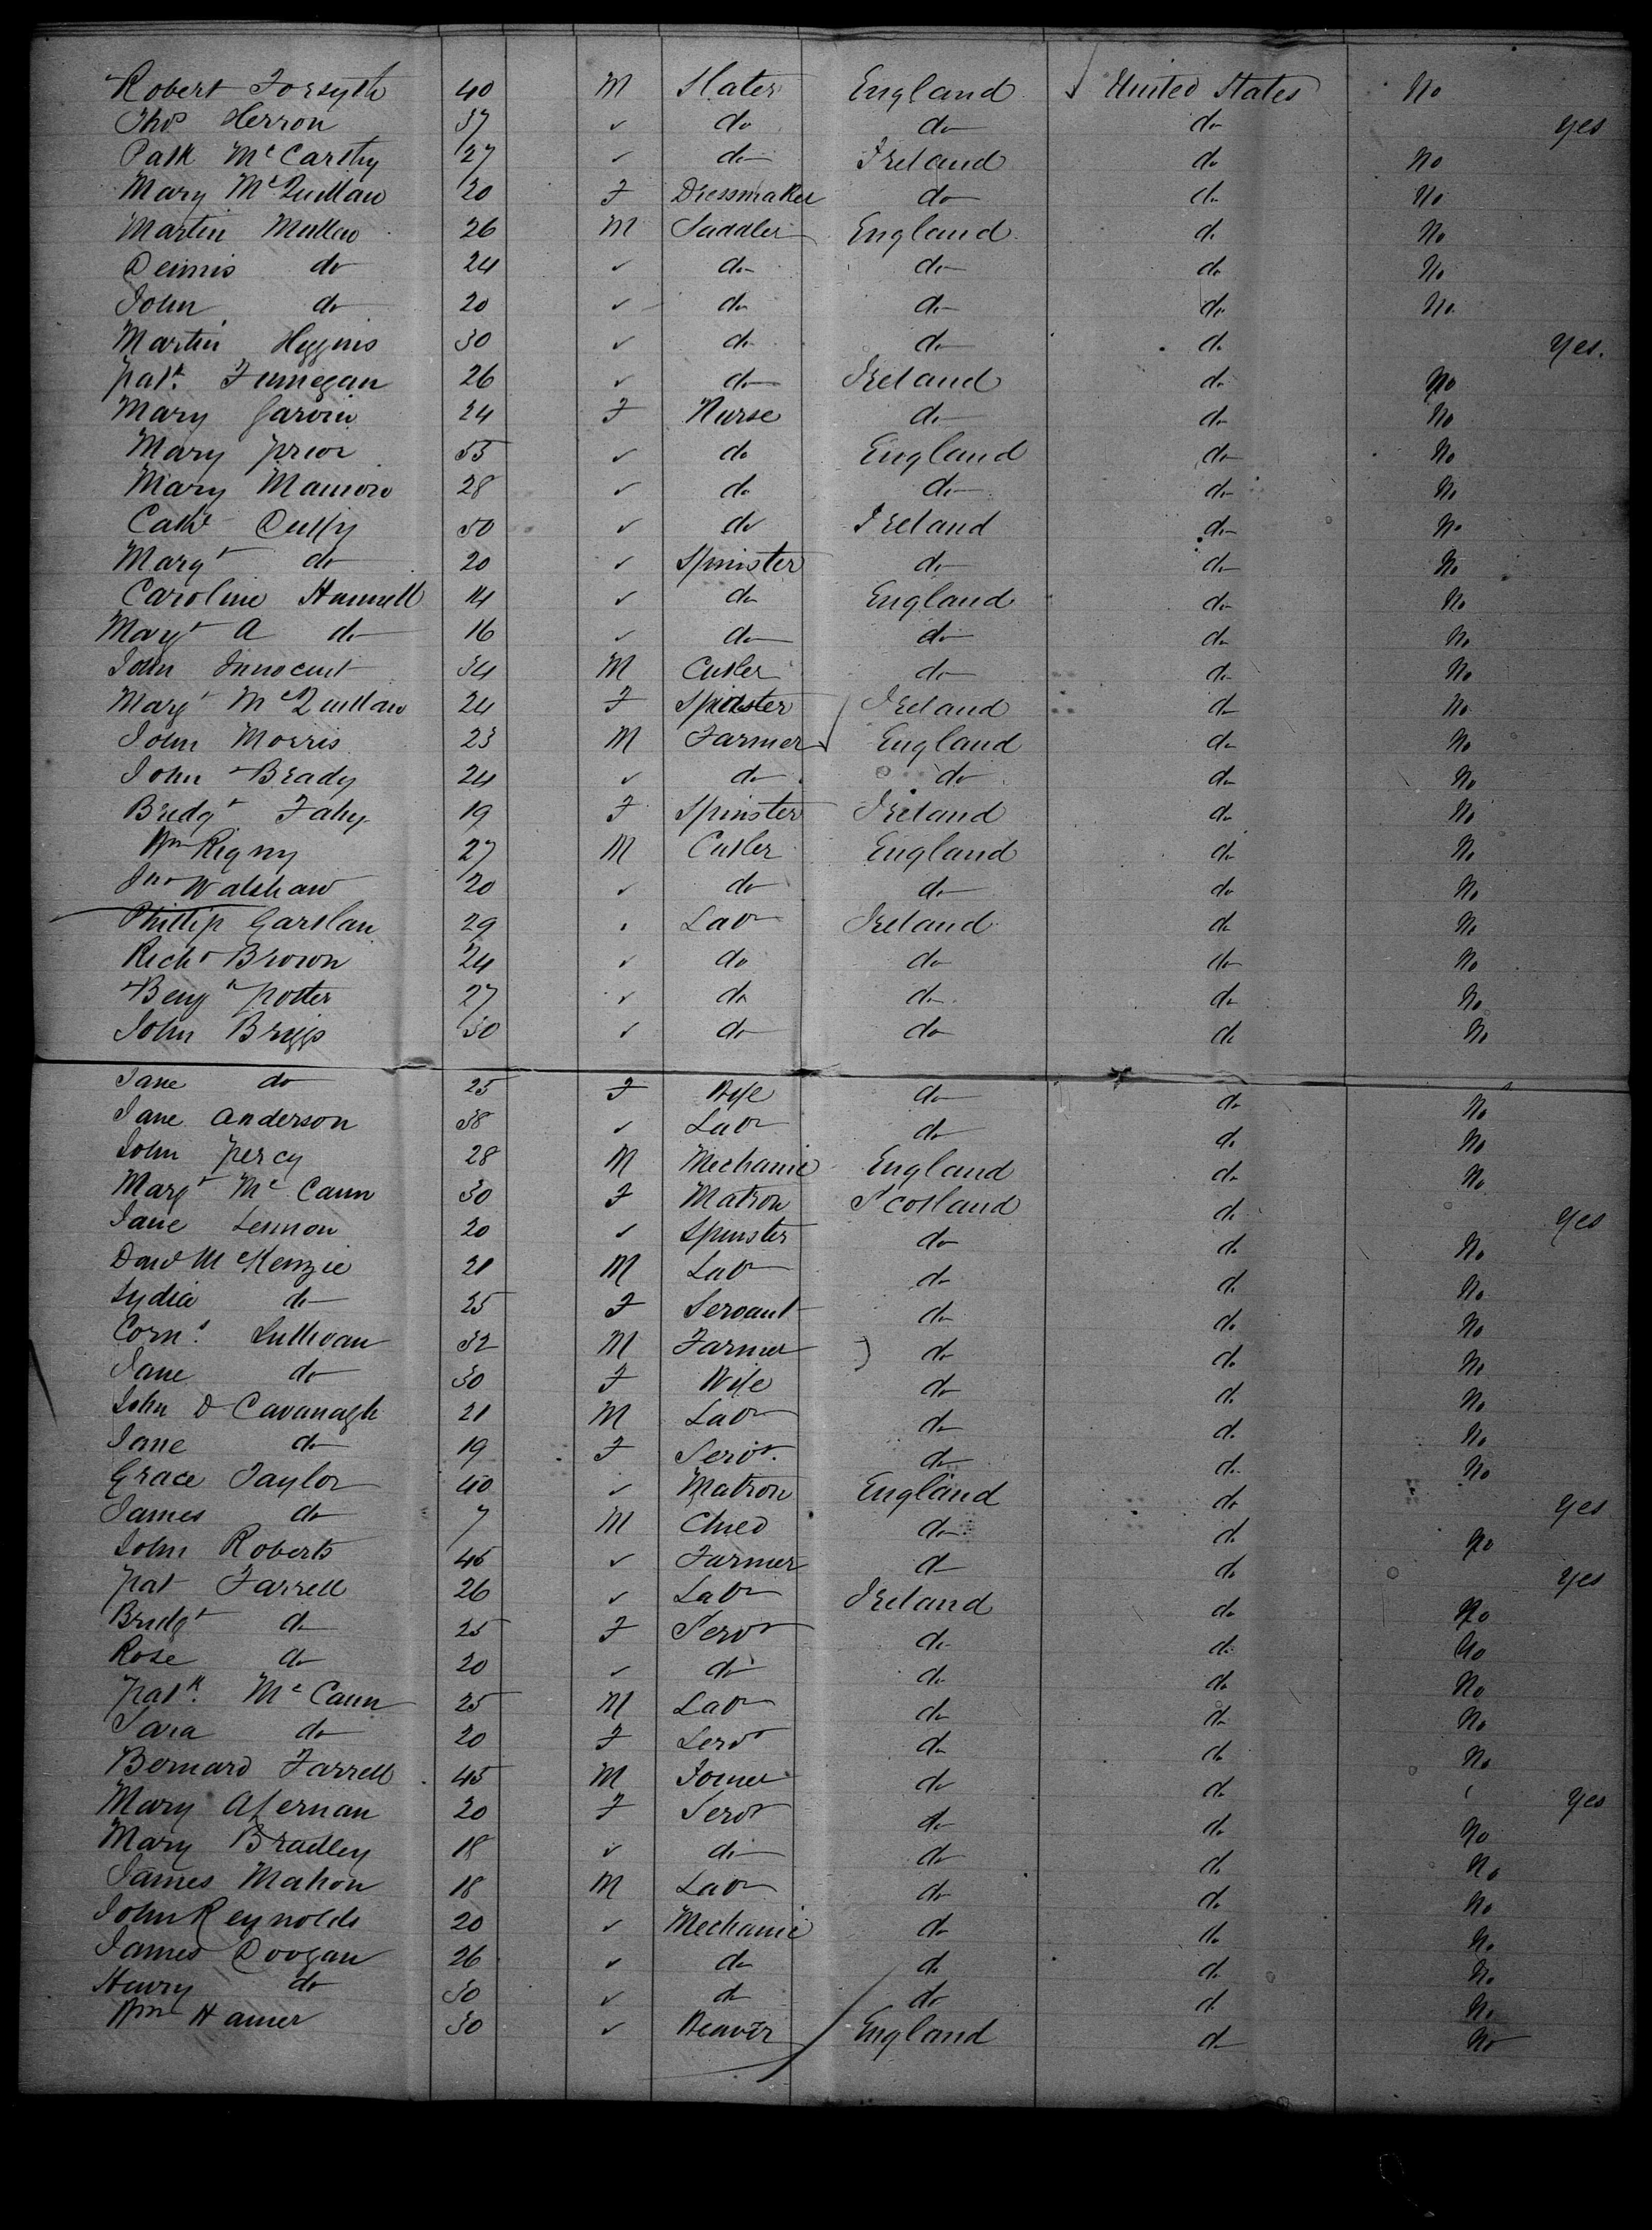 Robert Forsyth 40 M Slater England United States No
Thos Herron 37 ✓ do do do yes
Patk McCarthy 27 ✓ do Ireland do No
Mary McQuillan 20 F Dressmaker do do No
Martin Mullen 26 M Saddler England do No
Dennis do 24 ✓ do do do No
John do 20 ✓ do do do No
Martin Higgins 30 ✓ do do do yes.
Patk. Finnegan 26 ✓ do Ireland do No
Mary Garvin 24 F Nurse do do No
Mary Prior 55 ✓ do England do No
Mary 28 ✓ do do do No
Cathe Duffy 50 ✓ do Ireland do No
Margt do 20 ✓ Spinster do do No
Caroline 14 ✓ do England do No
Margt A do 16 ✓ do do do No
John Innocent 34 M Cutler do do No
Margt McQuillan 24 F Spinster Ireland do No
John Morris 23 M Farmer England do No
John Brady 24 ✓ do do do No
Bredgt Fahy 19 F Spinster Ireland do No
Wm Rigny 27 M Cutler England do No
Jno Walshaw 20 ✓ do do do No
Phillip Garslan 29 ✓ Labr Ireland do No
Richd Brown 24 ✓ do do do No
Benjn Potter 27 ✓ do do do No
John Briggs 30 ✓ do do do No
Jane do 25 F Wife do do No
Jane Anderson 38 ✓ Labr do do No
John Percy 28 M Mechanic England do No
Margt McCann 30 F Matron Scotland do yes
Jane Lennon 20 ✓ Spinster do do No
David McKenzie 21 M Labr do do No
Lydia do 25 F Servant do do No
Corns. Sullivan 32 M Farmer do do No
Jane do 30 F Wife do do No
John D Cavanagh 21 M Labr do do No
Jane do 19 F Servt. do do No
Grace Taylor 40 ✓ Matron England do yes
James do 7 M Child do do No
John Roberts 45 ✓ Farmer do do yes
Pat Farrell 26 ✓ Labr Ireland do No
Bridgt do 25 F Servt do do No
Rose do 20 ✓ do do do No
Patk. McCann 25 M Labr do do No
Sara do 20 F Servt do do No
Bernard Farrell 45 M Joiner do do yes
Mary 20 F Servt do do No
Mary Bradley 18 ✓ do do do No
James Mahon 18 M Labr do do No
John Reynolds 20 ✓ Mechanic do do No
James Doogan 26 ✓ do do do No
Henry do 30 ✓ do do do No
Wm Hamer 30 ✓ Weaver England do No